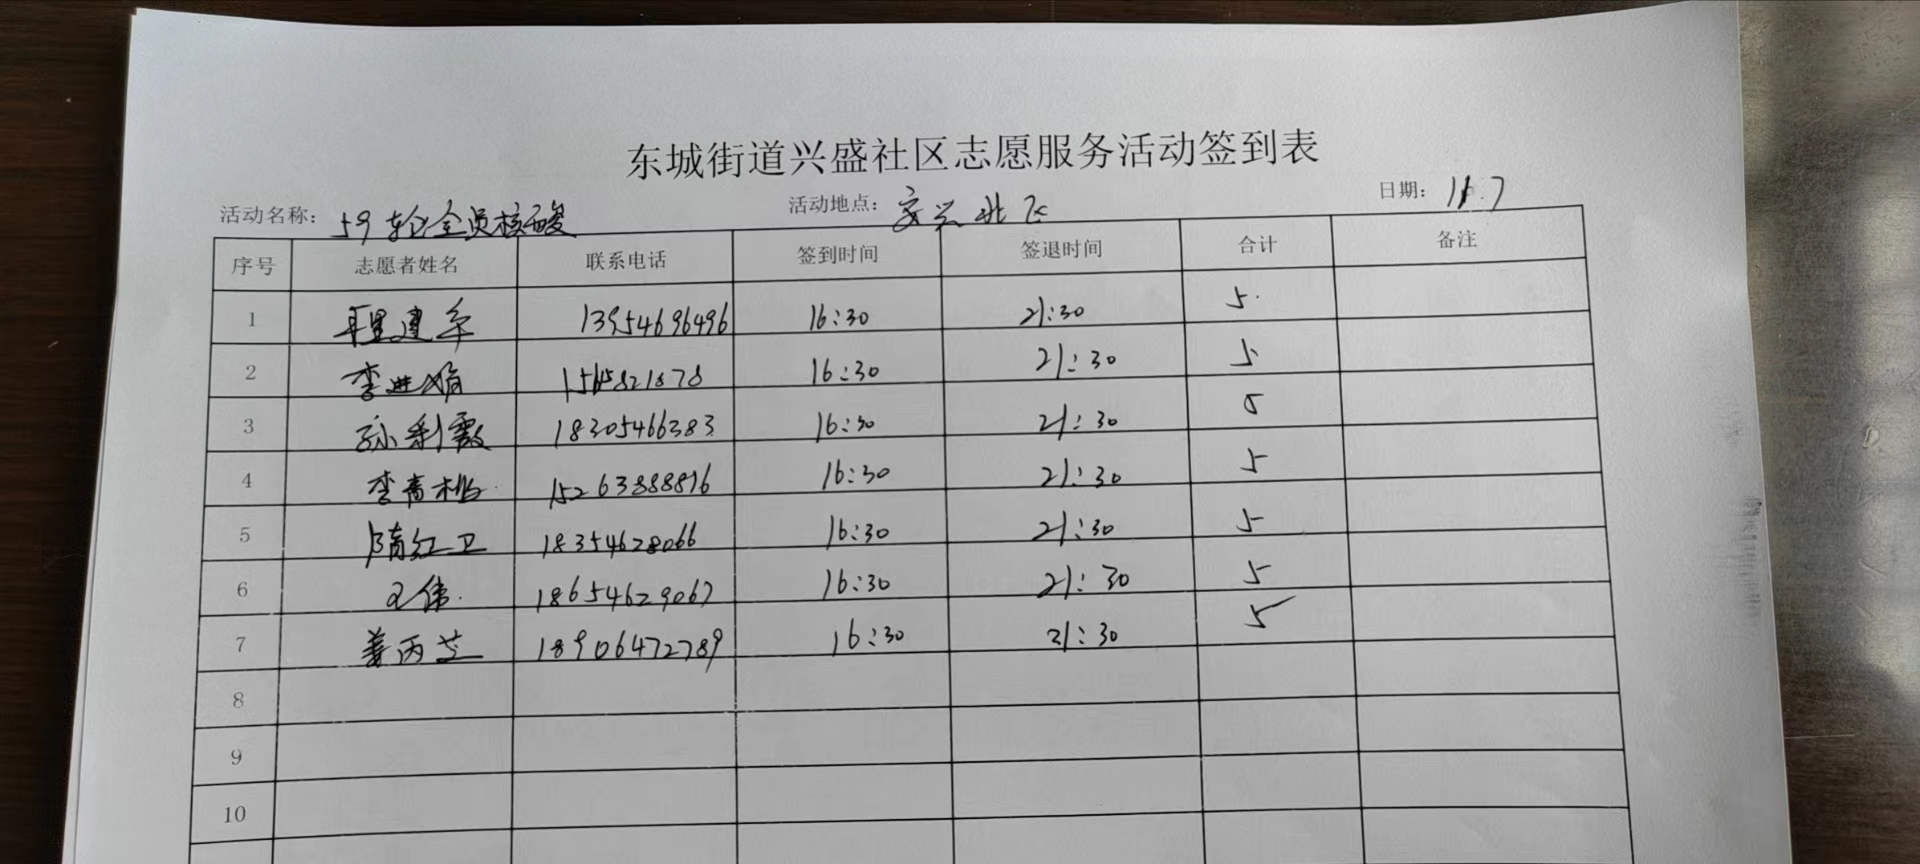 东城街道兴盛社区志愿服务活动签到表
活动名称: 59轮全员核酸 活动地点: 安兴北区 日期: 11.7
序号 志愿者姓名 联系电话 签到时间 签退时间 合计 备注
1 程建军 13954696496 16:30 21:30 5
2 李进娟 16:30 21:30 5
3 孙利霞 18305466383 16:30 21:30 5
4 李青桃 15263888816 16:30 21:30 5
5 隋红卫 18354628066 16:30 21:30 5
6 王伟 18654629067 16:30 21:30 5
7 姜丙芝 18906472789 16:30 21:30 5
8
9
10